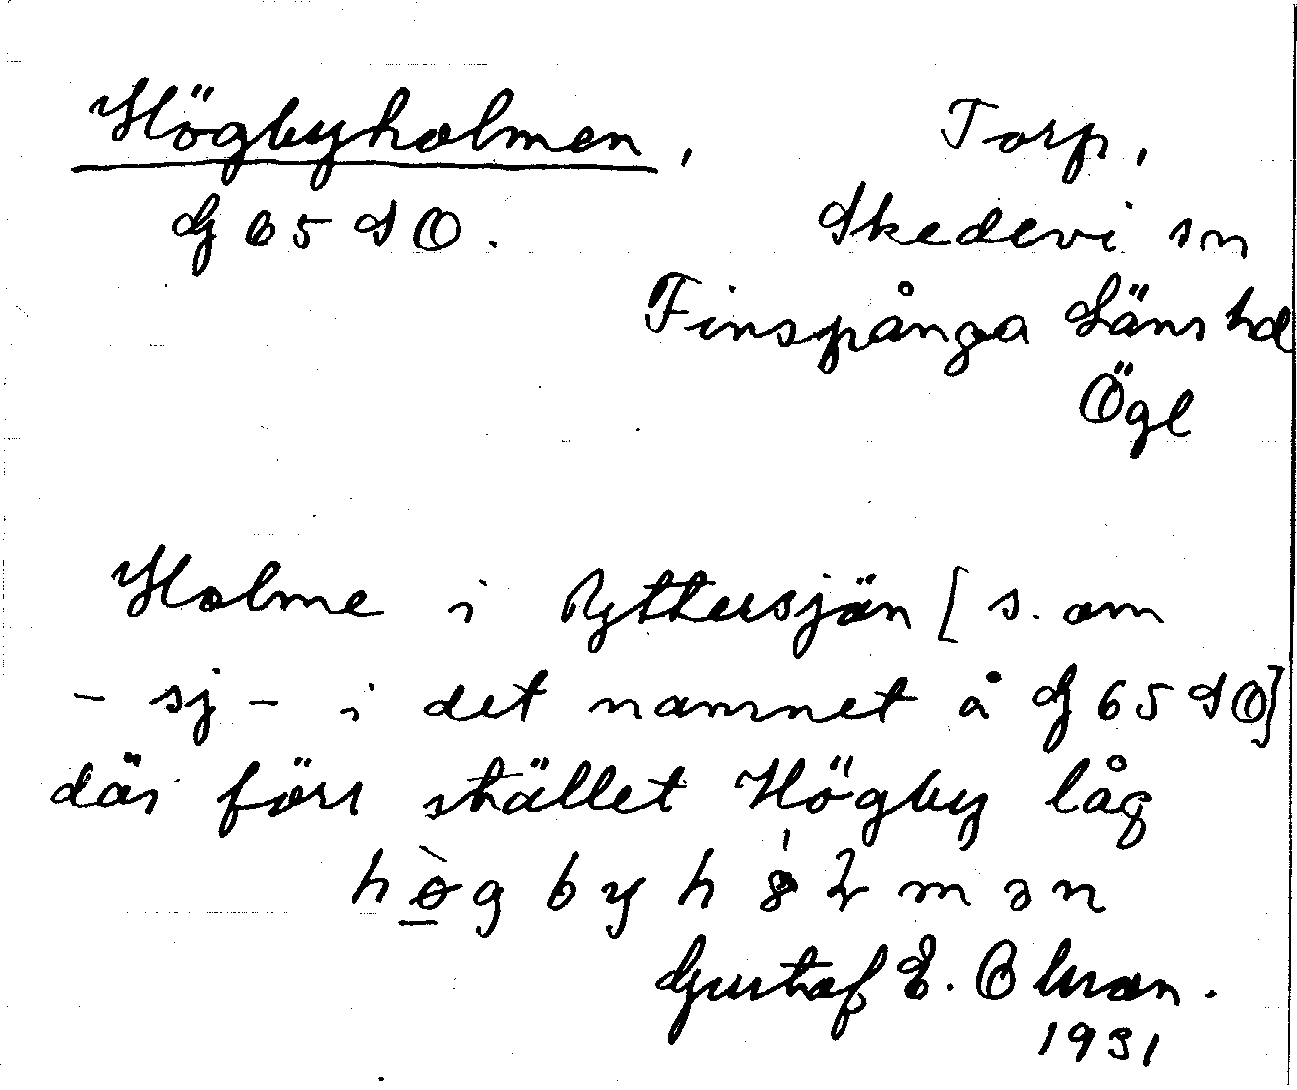 Högbyholmen, Torp,
G 65 SO. Skedevi sn
Finspånga Läns hd
Ögl
Holme i Ryttersjön [s. om
- sj - i det namnet å G 65 SO]
där förr stället Högby låg
Gustaf E.
1931